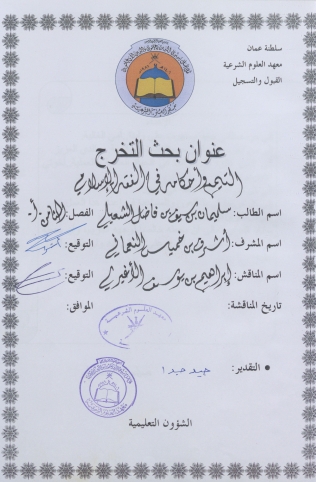 سلطنة عمان
معهد العلوم الشرعية
القبول والتسجيل
عنوان بحث التخرج
التأمين وأحكامه في الفقه الإسلامي
اسم الطالب: سليمان بن سيف بن فاضل الشعيلي الفصل: الثامن أ-
اسم المشرف: أشرف بن خميس النعماني التوقيع:
اسم المناقش: إبراهيم بن يوسف الأغبري التوقيع:
تاريخ المناقشة: الموافق:
• التقدير: جيد جدا
الشؤون التعليمية